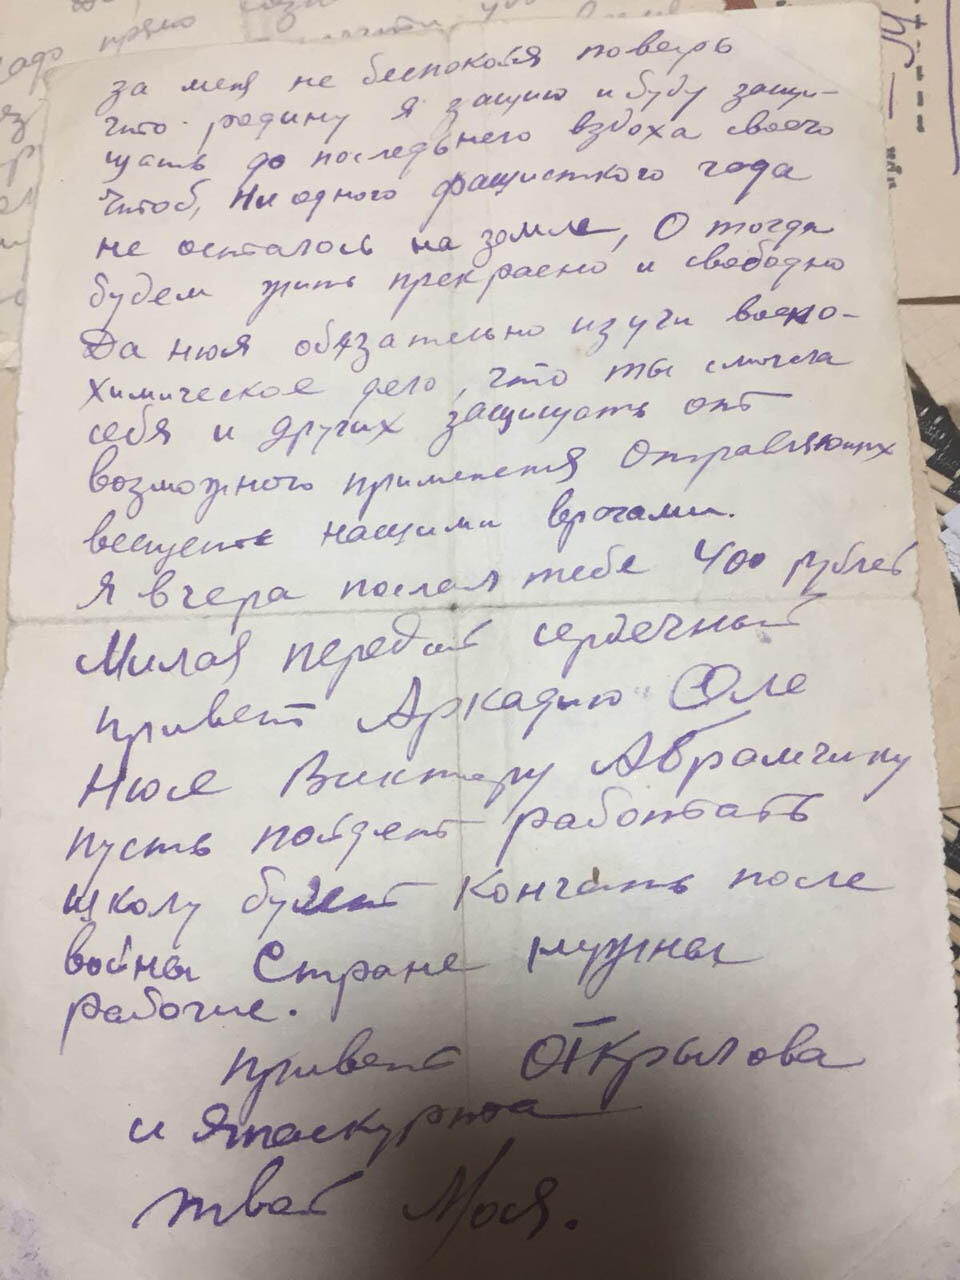 за меня не беспокойся поверь
что родину я защищю и буду защи-
щать до последьнего вздоха своего
Чтоб, ни одного фащисткого гада
не осталось на земле, О тогда
будем жить прекрасно и свободно
Да нюся обязательно изучи воено-
химическое дело, что ты смогла
себя и других защищать от
возможного применения отравляющих
веществ нащими врагами.
Я вчера послал тебе 400 рублей
Милая передай сердечный
привет Аркадию Оле
Нюсе Виктору Абрамчику
пусть пойдет работать
школу будет кончать после
войны Стране нужны
рабочие.
привет От Крылова
и
твой Мося.